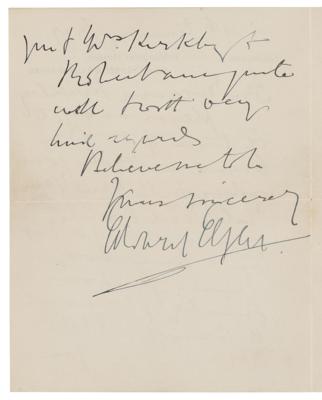 you & Mrs Kirkby &
Robert are quite
well & with very
kind regards
Believe me to be
Yours sincerely
Edward Elgar.